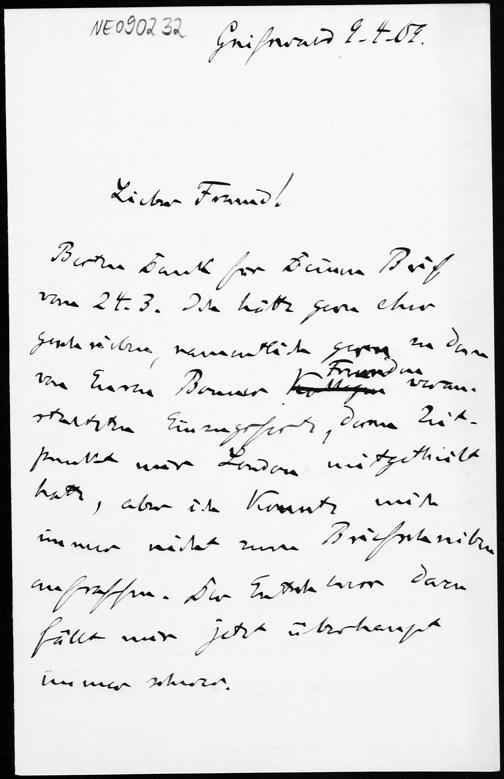 NE090232
Greifswald 9-4-09.
Lieber Freund!
Besten Dank for Deinen Brief
vom 24.3. Ich hätte gern eher
geschrieben, namentlich gern zu dem
Freunden
von Euren Bonner Kollegen veran-
stalteten Einzugsfest, deren Zeit-
punkt mir London mitgetheilt
hatte, aber ich konnte mich
immer nicht zum Briefschreiben
aufraffen. Der Entschluss dazu
fällt mir jetzt überhaupt
immer schwer.